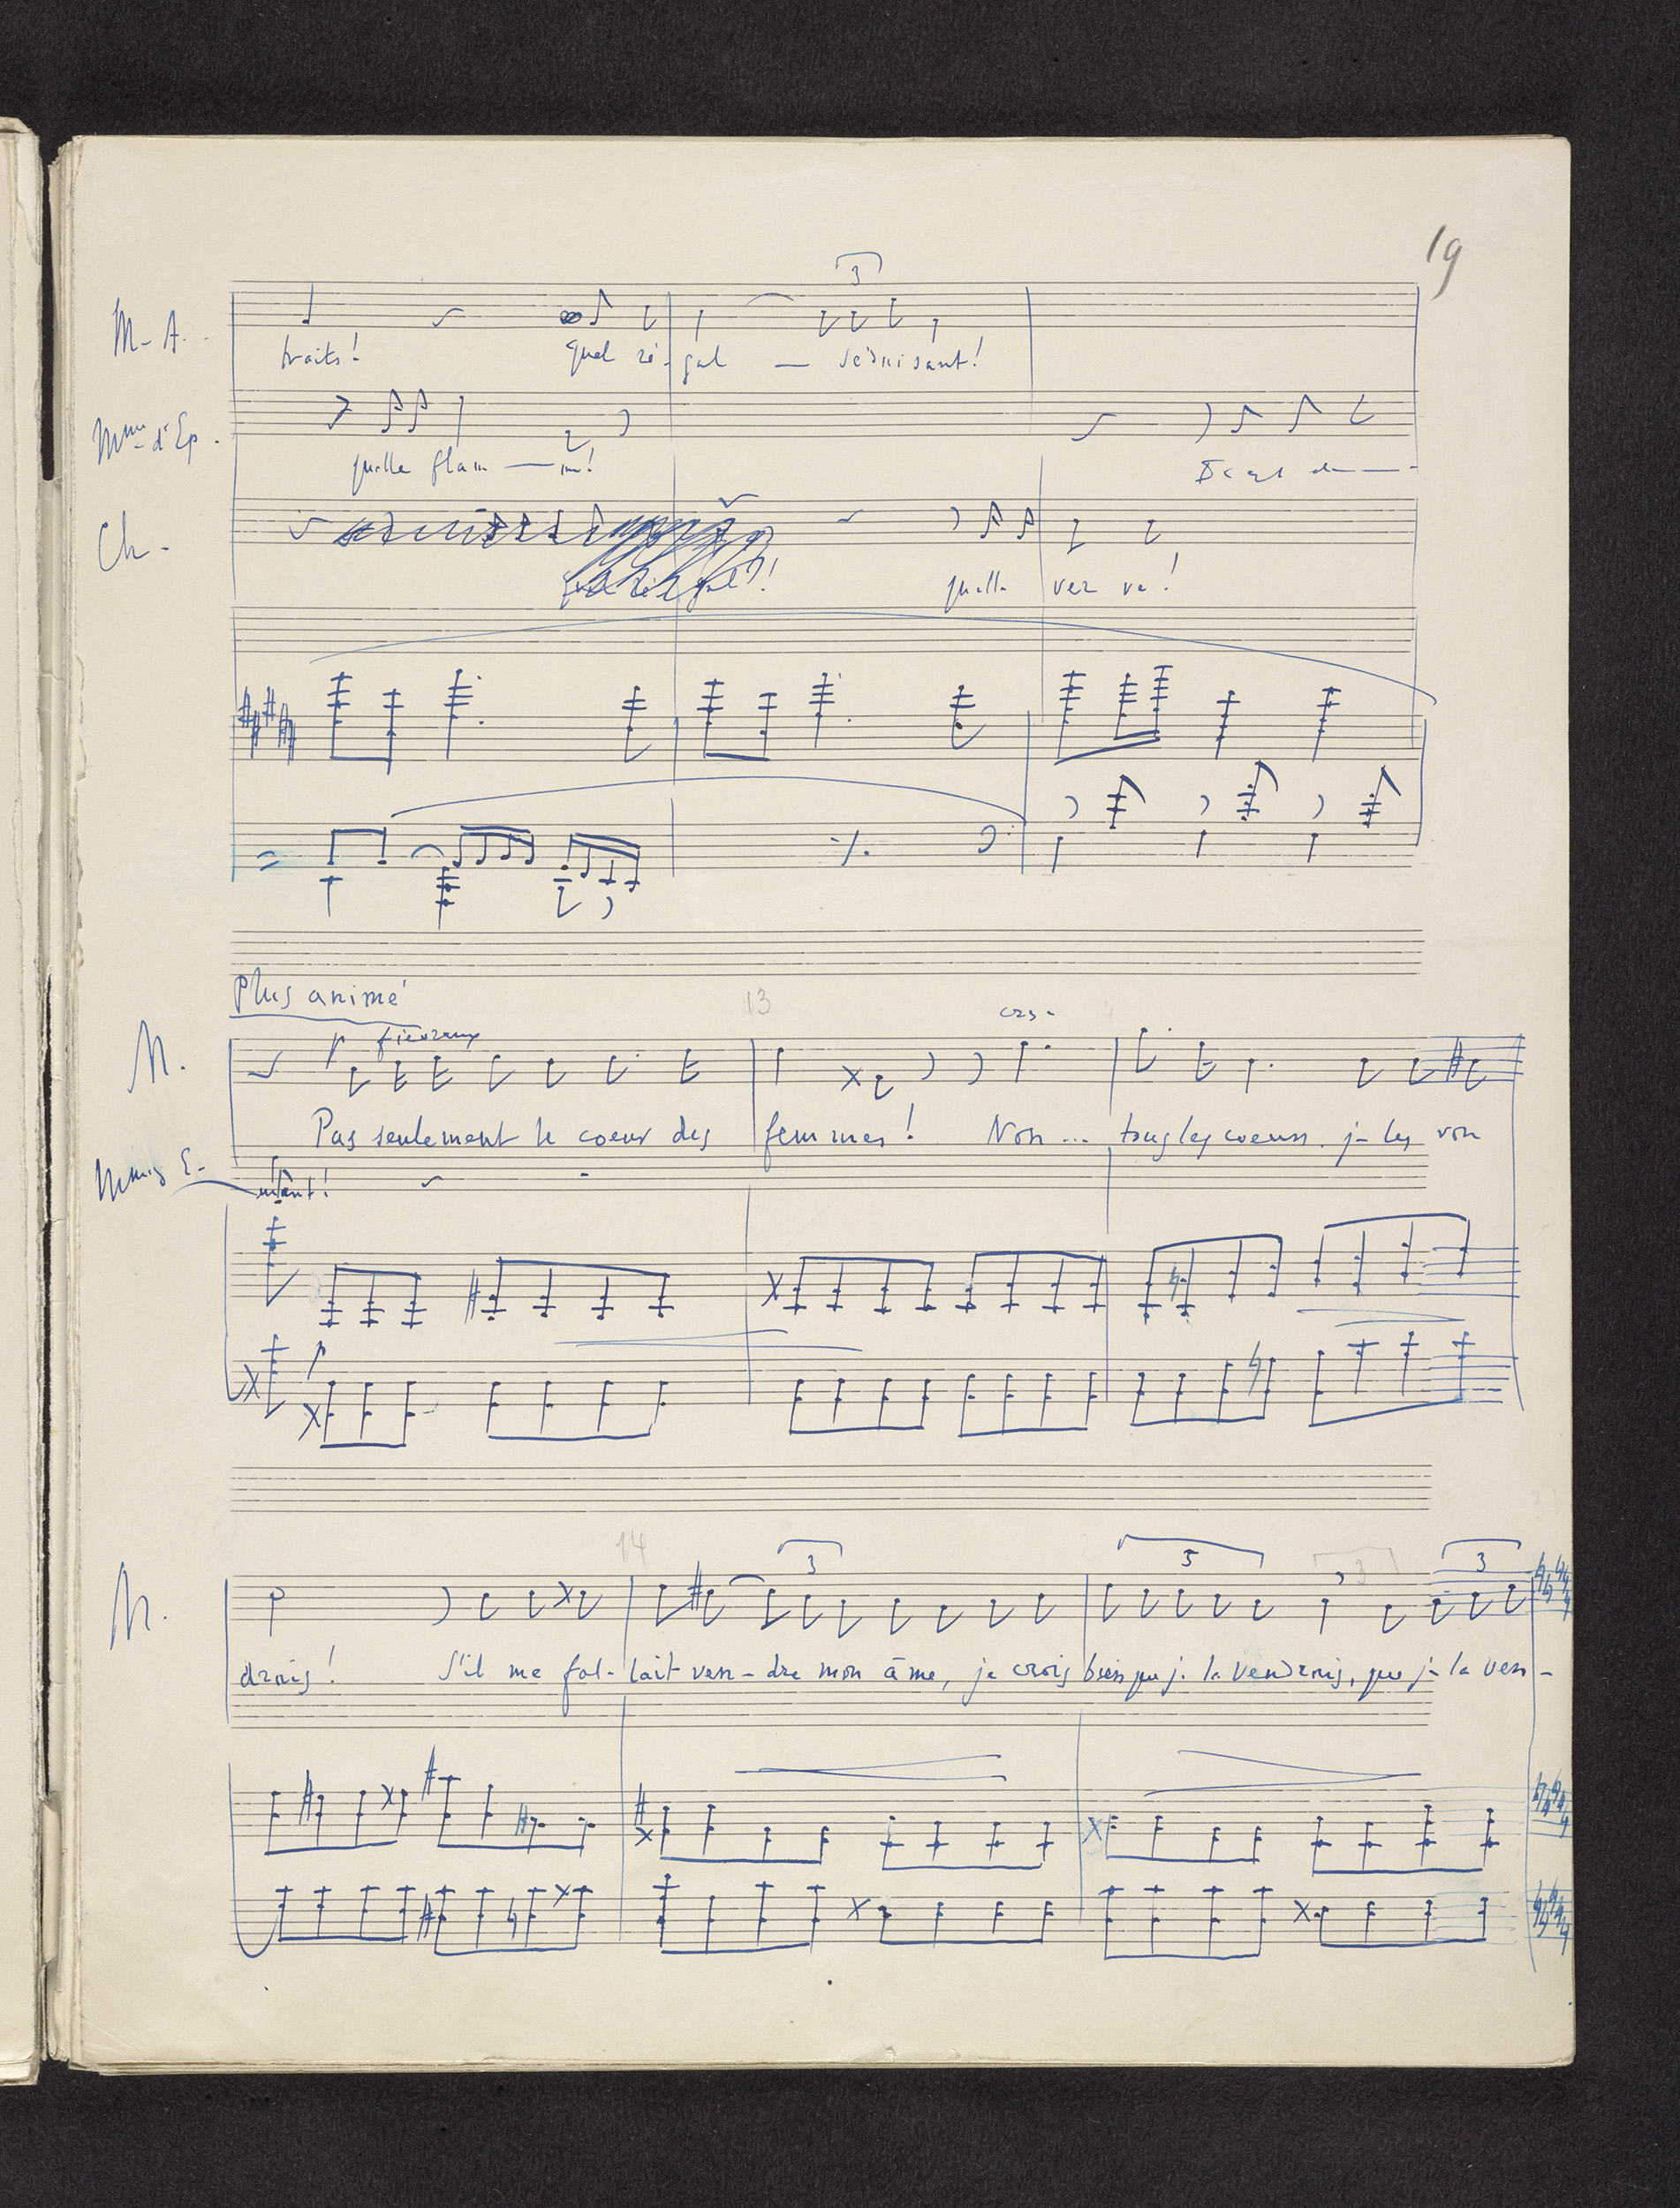 19
3
M- A.
traits! quel ré- gal — séduisant!
Mme d'Ep.
quelle flam — me!
Ch-
quelle ver ve!
Plus animé
13
M.
fiévreux
Pas seulement le coeur des femmes! Non... tous les coeurs je les von
14
3 5 3 3
M.
drais! S'il me fal- lait ven- dre mon âme, je crois bien que je la vendrais, que je la ven-